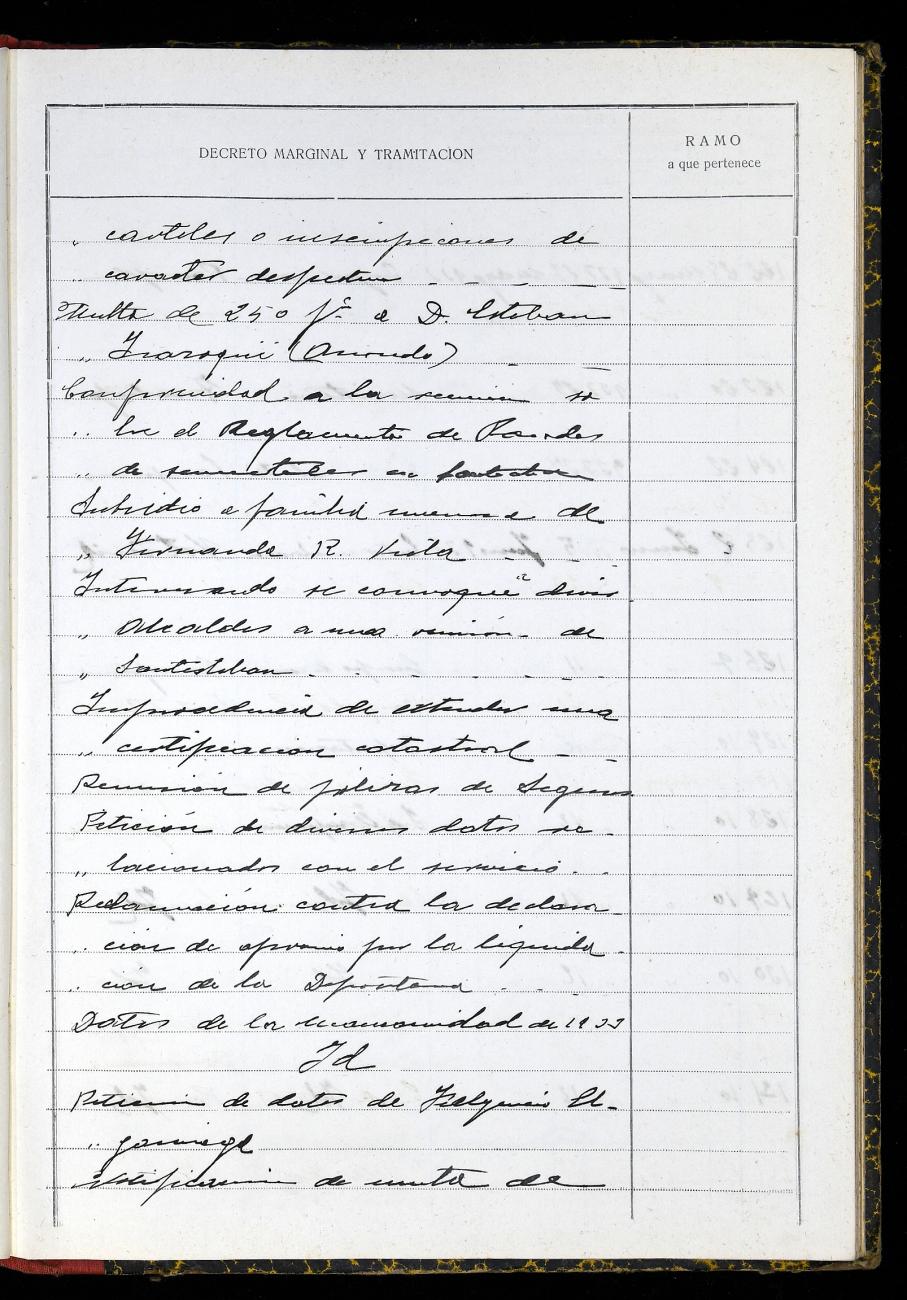 DECRETO MARGINAL Y TRAMITACION
RAMO
a que pertenece
„ carteles o inscripciones de
„ caracter despectivo - - -
Multa de 250 Pts a D. Esteban
„ Izaroqui ( )
Conformidad a la reunion so
„ bre el Reglamento de Paradas
„ de sementales
Subsidio a familia numerosa de
„ Fernando R. Viela
Interesando se convoque a divers
„ Alcaldes a una reunión de
„ Santesteban
Improcedencia de extender una
„ certificacion catastral
Remisión de pólizas de Seguros
Petición de diversos datos re -
„ lacionados con el servicio
Reclamación contra la declara
„ ción de apremio por la liquida
„ cion de la Depositaria
Datos de la mancomunidad de 1933
Id
Peticion de datos de Fulgencio El-
„
Notificacion de multa de